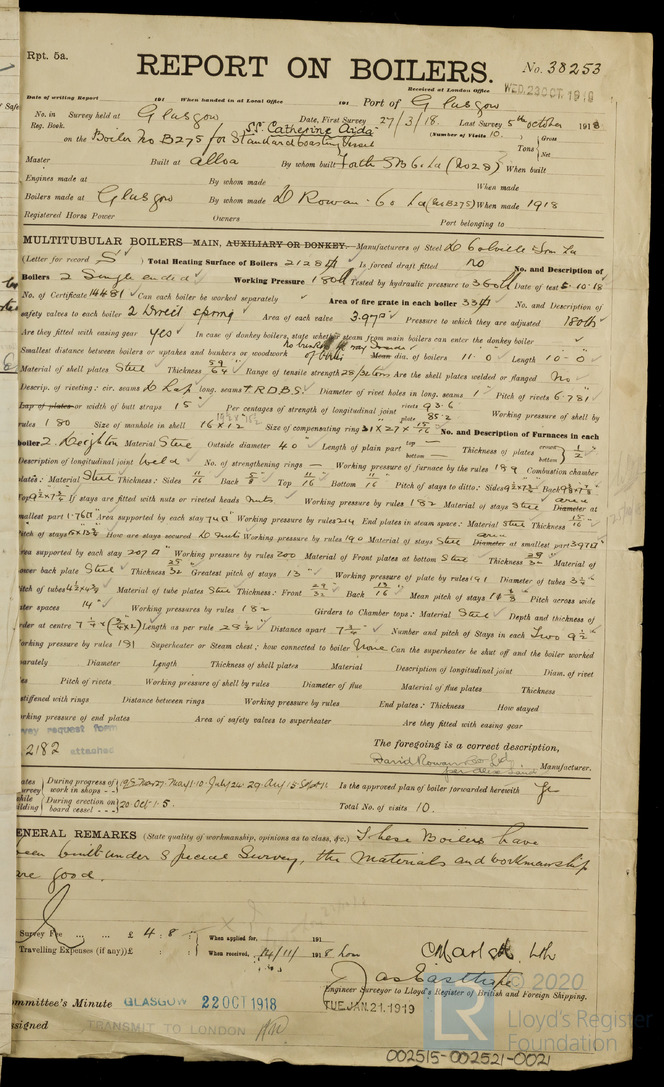 Rpt. 5a.
REPORT ON BOILERS.
No. 38253
Received at London Office WED. 23 OCT. 1918
Date of writing Report 191 When handed in at Local Office 191 Port of Glasgow
No. in Survey held at Glasgow Date, First Survey 27/3/18. Last Survey 5th October 1918
Reg. Book. (Number of Visits 10.) Gross
S.S. Catherine Aida
on the Boiler No B275 for Standard Coasting Vessel Tons Net
Master Built at Alloa By whom built Forth S B Co Ld (No 28) When built
Engines made at By whom made When made
Boilers made at Glasgow By whom made D Rowan & Co Ld (No B275) When made 1918
Registered Horse Power Owners Port belonging to
MULTITUBULAR BOILERS MAIN, AUXILIARY OR DONKEY. Manufacturers of Steel D Colville & Sons Ld
(Letter for record S) Total Heating Surface of Boilers 2128 Is forced draft fitted No No. and Description of
Boilers 2 Single ended Working Pressure 180 Tested by hydraulic pressure to 360 Date of test 5.10.18
No. of Certificate 14481 Can each boiler be worked separately Area of fire grate in each boiler 33 No. and Description of
safety valves to each boiler 2 Direct spring Area of each valve 3.97 Pressure to which they are adjusted 180
Are they fitted with easing gear yes In case of donkey boilers, state whether steam from main boilers can enter the donkey boiler
Smallest distance between boilers or uptakes and bunkers or woodwork Mean dia. of boilers 11-0 Length 10-0
Material of shell plates Steel Thickness 59/64 Range of tensile strength 28/32 tons Are the shell plates welded or flanged No
Descrip. of riveting: cir. seams D Lap long. seams T.R.D.B.S. Diameter of rivet holes in long. seams 1 Pitch of rivets 6.781
Lap of plates or width of butt straps 15 Per centages of strength of longitudinal joint rivets 93.6 plate 85.2 Working pressure of shell by
rules 180 Size of manhole in shell 16 x 12 Size of compensating ring 31 x 27 x 15/16 No. and Description of Furnaces in each
boiler 2 Deighton Material Steel Outside diameter 40 Length of plain part top bottom Thickness of plates crown bottom 1/2
Description of longitudinal joint Weld No. of strengthening rings Working pressure of furnace by the rules 189 Combustion chamber
plates: Material Steel Thickness: Sides 11/16 Back 5/8 Top 11/16 Bottom 11/16 Pitch of stays to ditto: Sides 9½ x 7¾ Back
Top 9½ x 7¾ If stays are fitted with nuts or riveted heads nuts Working pressure by rules 182 Material of stays Steel area Diameter at
smallest part 1.76 Area supported by each stay 74 Working pressure by rules 214 End plates in steam space: Material Steel Thickness 15/16
Pitch of stays How are stays secured D nuts Working pressure by rules 190 Material of stays Steel area Diameter at smallest part 3.97
Area supported by each stay 207 Working pressure by rules 200 Material of Front plates at bottom Steel Thickness 29/32 Material of
Lower back plate Steel Thickness 25/32 Greatest pitch of stays 13 Working pressure of plate by rules 191 Diameter of tubes 3¼
Pitch of tubes 4½ x 4¾ Material of tube plates Steel Thickness: Front 29/32 Back 13/16 Mean pitch of stays Pitch across wide
water spaces 14 Working pressures by rules 182 Girders to Chamber tops: Material Steel Depth and thickness of
girder at centre 7¼ x (¾ x 2) Length as per rule 28½ Distance apart 7¾ Number and pitch of Stays in each Two 9½
Working pressure by rules 191 Superheater or Steam chest; how connected to boiler None Can the superheater be shut off and the boiler worked
separately Diameter Length Thickness of shell plates Material Description of longitudinal joint Diam. of rivet
holes Pitch of rivets Working pressure of shell by rules Diameter of flue Material of flue plates Thickness
If stiffened with rings Distance between rings Working pressure by rules End plates: Thickness How stayed
Working pressure of end plates Area of safety valves to superheater Are they fitted with easing gear
Survey request form
2182 attached
The foregoing is a correct description,
David Rowan & Co Ld
Manufacturer.
Dates of Survey while building
During progress of work in shops - - Is the approved plan of boiler forwarded herewith
During erection on board vessel - - - 20 Oct. 1. 5. Total No. of visits 10.
GENERAL REMARKS (State quality of workmanship, opinions as to class, &c.) These Boilers have
been built under Special Survey, the Materials and workmanship
are good.
Survey Fee ... ... £ 4 : 8 : When applied for, 191
Travelling Expenses (if any) £ : : When received, 14/11/1918
Jas Easthope
Engineer Surveyor to Lloyd's Register of British and Foreign Shipping.
Committee's Minute GLASGOW 22 OCT 1918 TUE. JAN. 21. 1919
Assigned TRANSMIT TO LONDON
© 2020
Lloyd's Register
Foundation
002515-002521-0021